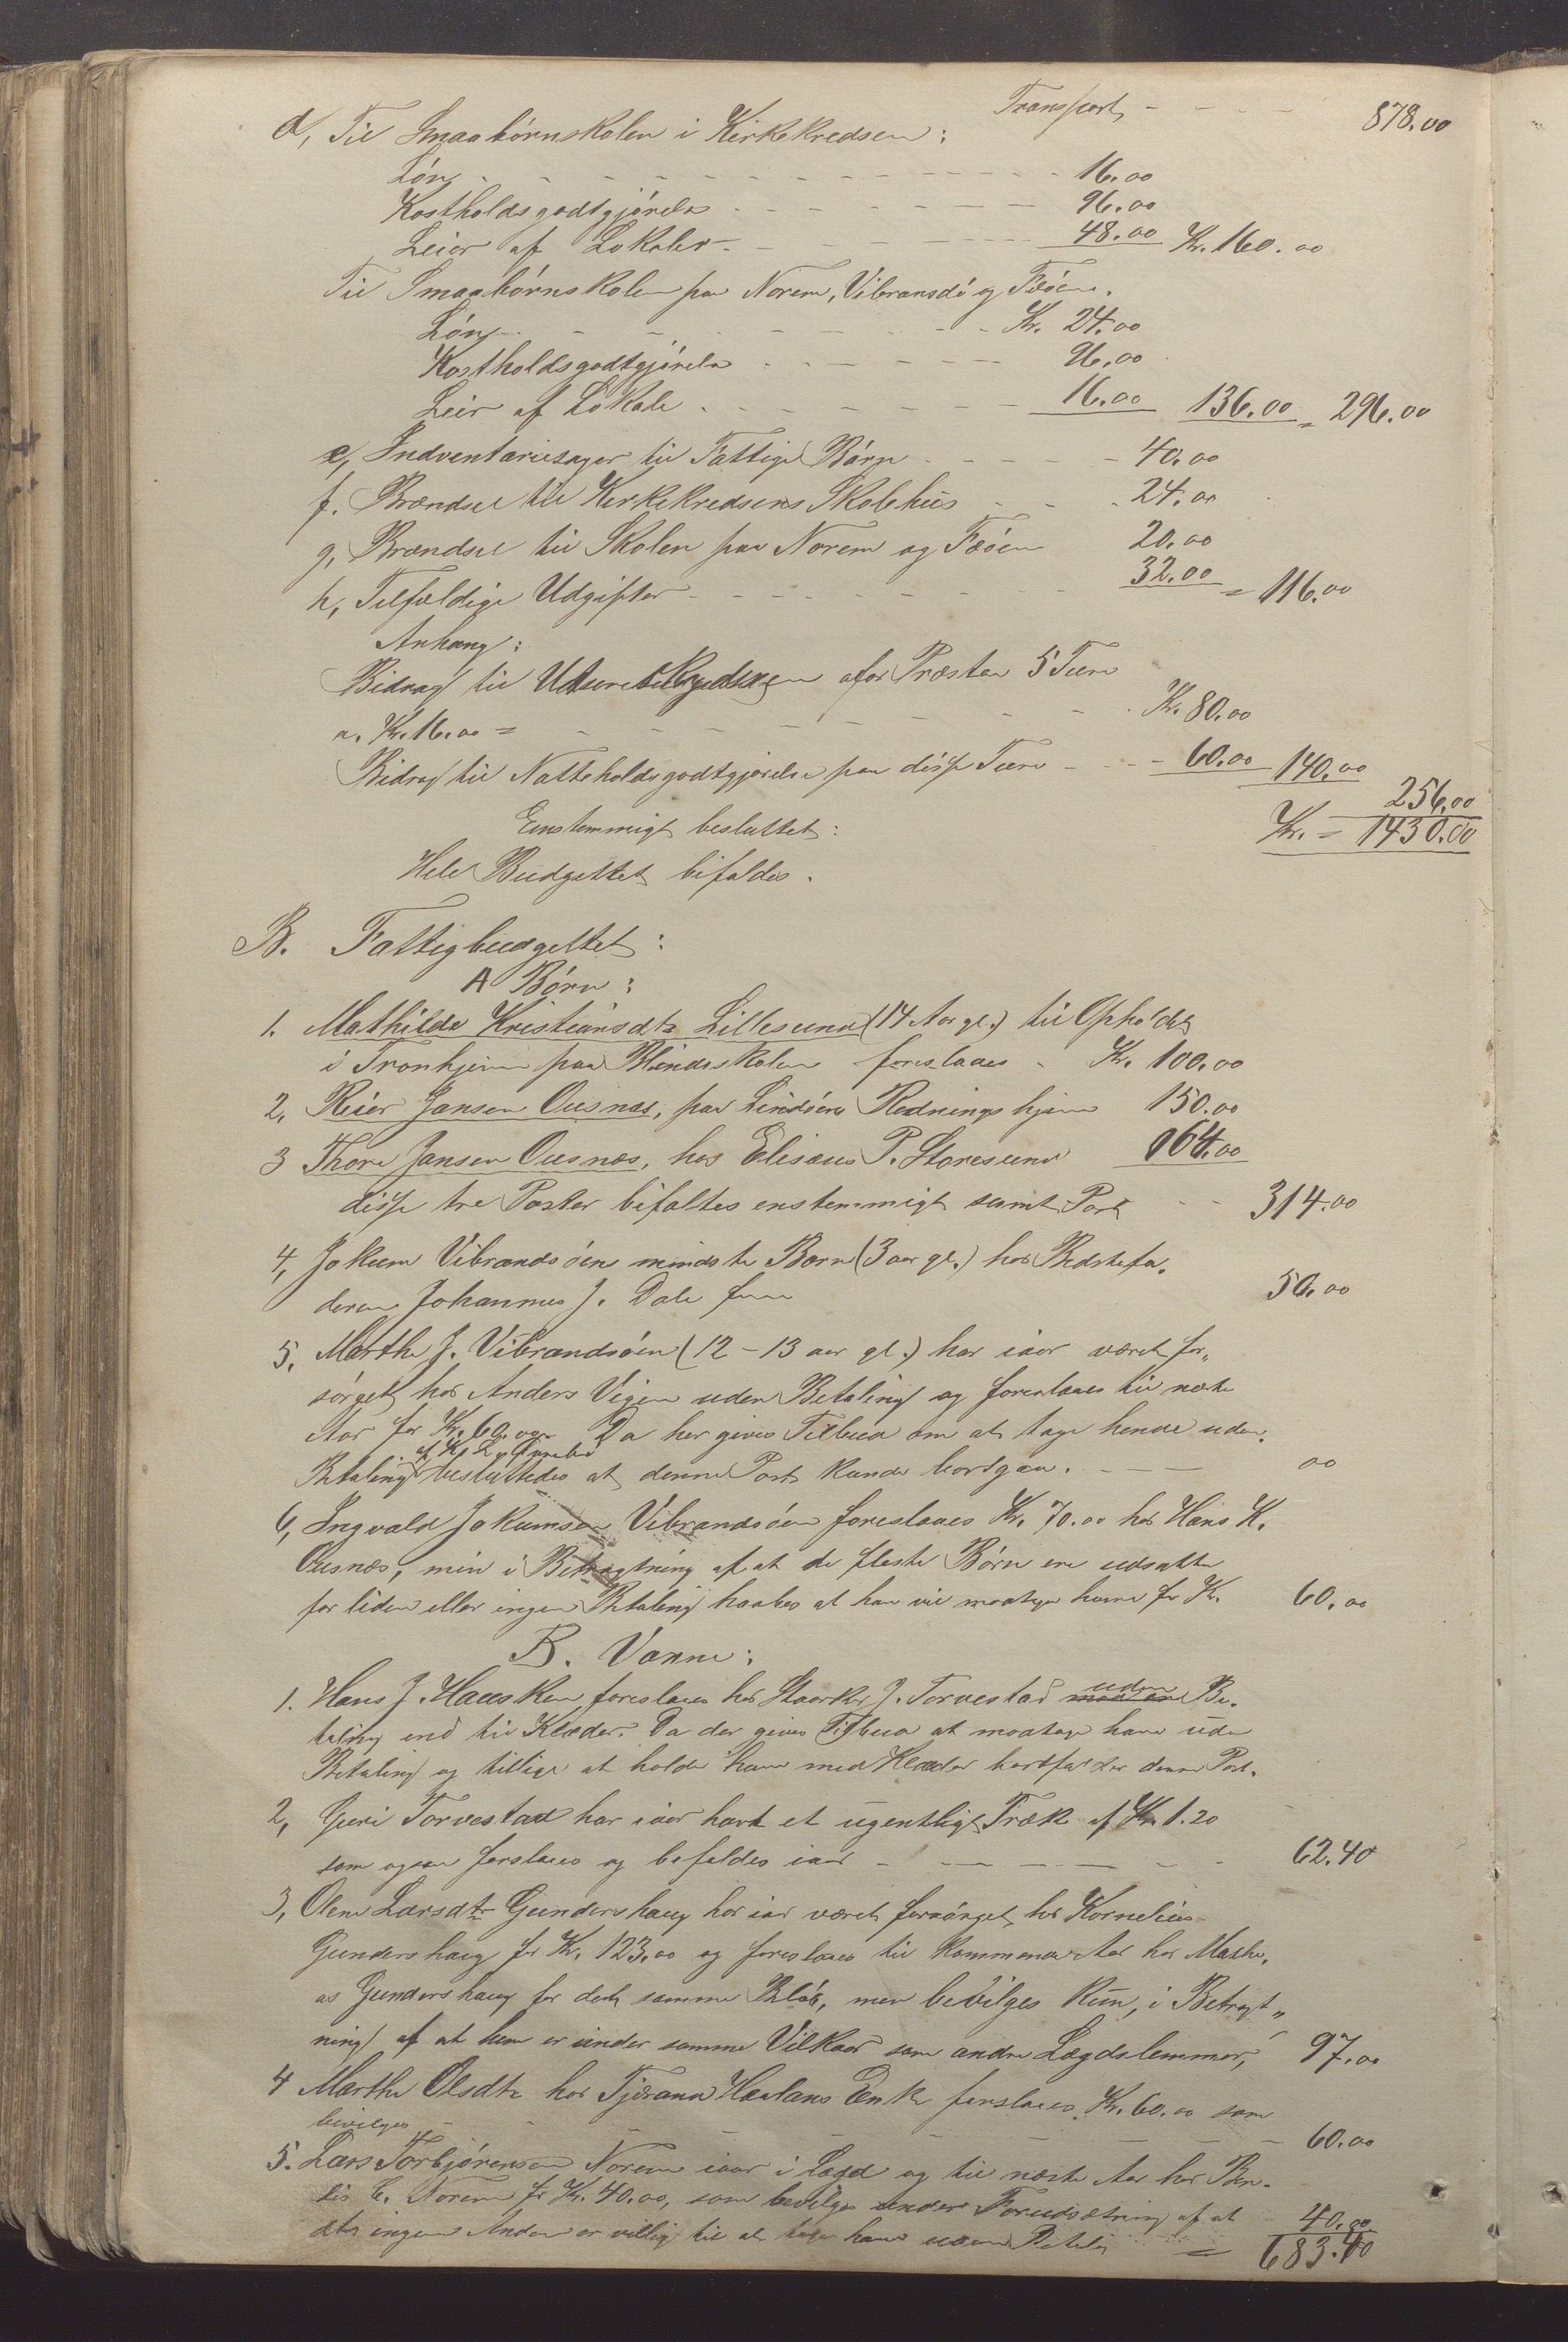 Transport - - - - 878.00
d, Til Smaabørnskolen i Kirkekredsen:
Løn - - - - - - - 16.00
Kostholdsgodtgjørelse - - - - - 96.00
Leier af Lokaler - - - - - 48.00 Kr. 160.00
Til Smaabørnskolen paa Norem, Vibransdø og Fæøen.
Løn - - - - - - Kr. 24.00
Kostholdsgodtgjørelse - - - - 96.00
Leie af Lokale - - - - - 16.00 136.00 = 296.00
e, Indventariesager til Fattige Børn - - - - 40.00
f. Brændsel til Kirkekredsens Skolehus - - - 24.00
g, Brændsel til Skolen paa Norem og Fæøen 20.00
h, Tilfældige Udgifter - - - - - - 32.00 = 116.00
Anhang:
Bidrag til Utsireskydsen afor Præsten 5 Ture
a. Kr. 16.00 = - - - - - - Kr. 80.00
Bidrag til Natteholdsgodtgjørelse paa disse Ture - - - 60.00 140.00
256.00
Enstemmigt besluttet: Kr. = 1430.00
Hele Budgettet bifaldes.
B. Fattigbudgettet:
A Børn:
1. Mathilde Kristiansdtr Lillesund (14 Aar gl.) til Opholdet
i Tronhjem paa Blindeskolen foreslaaes - Kr. 100.00
2, Reier Jansen Ousnes, paa Lindøens Rednings hjem 150.00
3 Thore Jansen Ousnes, hos Elisæus P. Storesund 064.00
disse tre Poster bifaltes enstemmigt samt Port - - 314.00
4, Jokum Vibrandsøens mindste Barn (3 aar gl.) hos Bedstefa,
deren Johannes J. Dale 50.00
5, Marthe J. Vibrandsøen (12 - 13 aar gl.) har iaar været for,,
sørget hos Anders Vigen uden Betaling og foreslaaes til næste
Aar for Kr. 60.00. Da her gives Tilbud om at tage hende uden
af Kr L.
Betaling besluttedes at denne Post kunde bortgaa. - - - 00
6, Ingvald Jokumsen Vibrandsøen foreslaaes Kr. 70.00 hos Hans K.
Ousnæs, men i Betragtning af at de fleste Børn ere udsatte
for liden eller ingen Betaling haabes at han vil modtage ham for Kr. 60.00
B. Voxne:
1. Hans J. Hausken foreslaaes hos Staarker J. Torvestad uden Be,
taling end til Klæder. Da der gives Tilbud at modtage ham uden
Betaling og tillige at holde ham med Klæder bortfalder denne Post.
2, Guri Torvestad har iaar havt et ugentligt Træk af Kr. 1.20
som ogsaa forslaaes og befaldes iaar - - - - - - 62.40
3, Olene Larsdtr Gundershaug har iaar været forsørget hos Kornelius
Gundershaug for Kr. 123.00 og foreslaaes til kommende Aar hos Mathi,
as Gundershaug for det samme Beløb, men bevilges kun, i Betragt,,
ning af at hun er under samme Vilkaar som andre Lægdslemmer, 97.00
4 Marthe Olsdtr hos Tjørand Haalans Enke forslaaes Kr. 60.00 som
bevilges - - - - - - - 60.00
5. Lars Torbjørnsen Norem iaar i Lægd og til næste Aar hos Ben,
dis C. Norem for Kr. 40.00, som bevilges under Forudsætning af at 40.00
ingen Anden er villig til at tage ham uden Betaling = 683.40